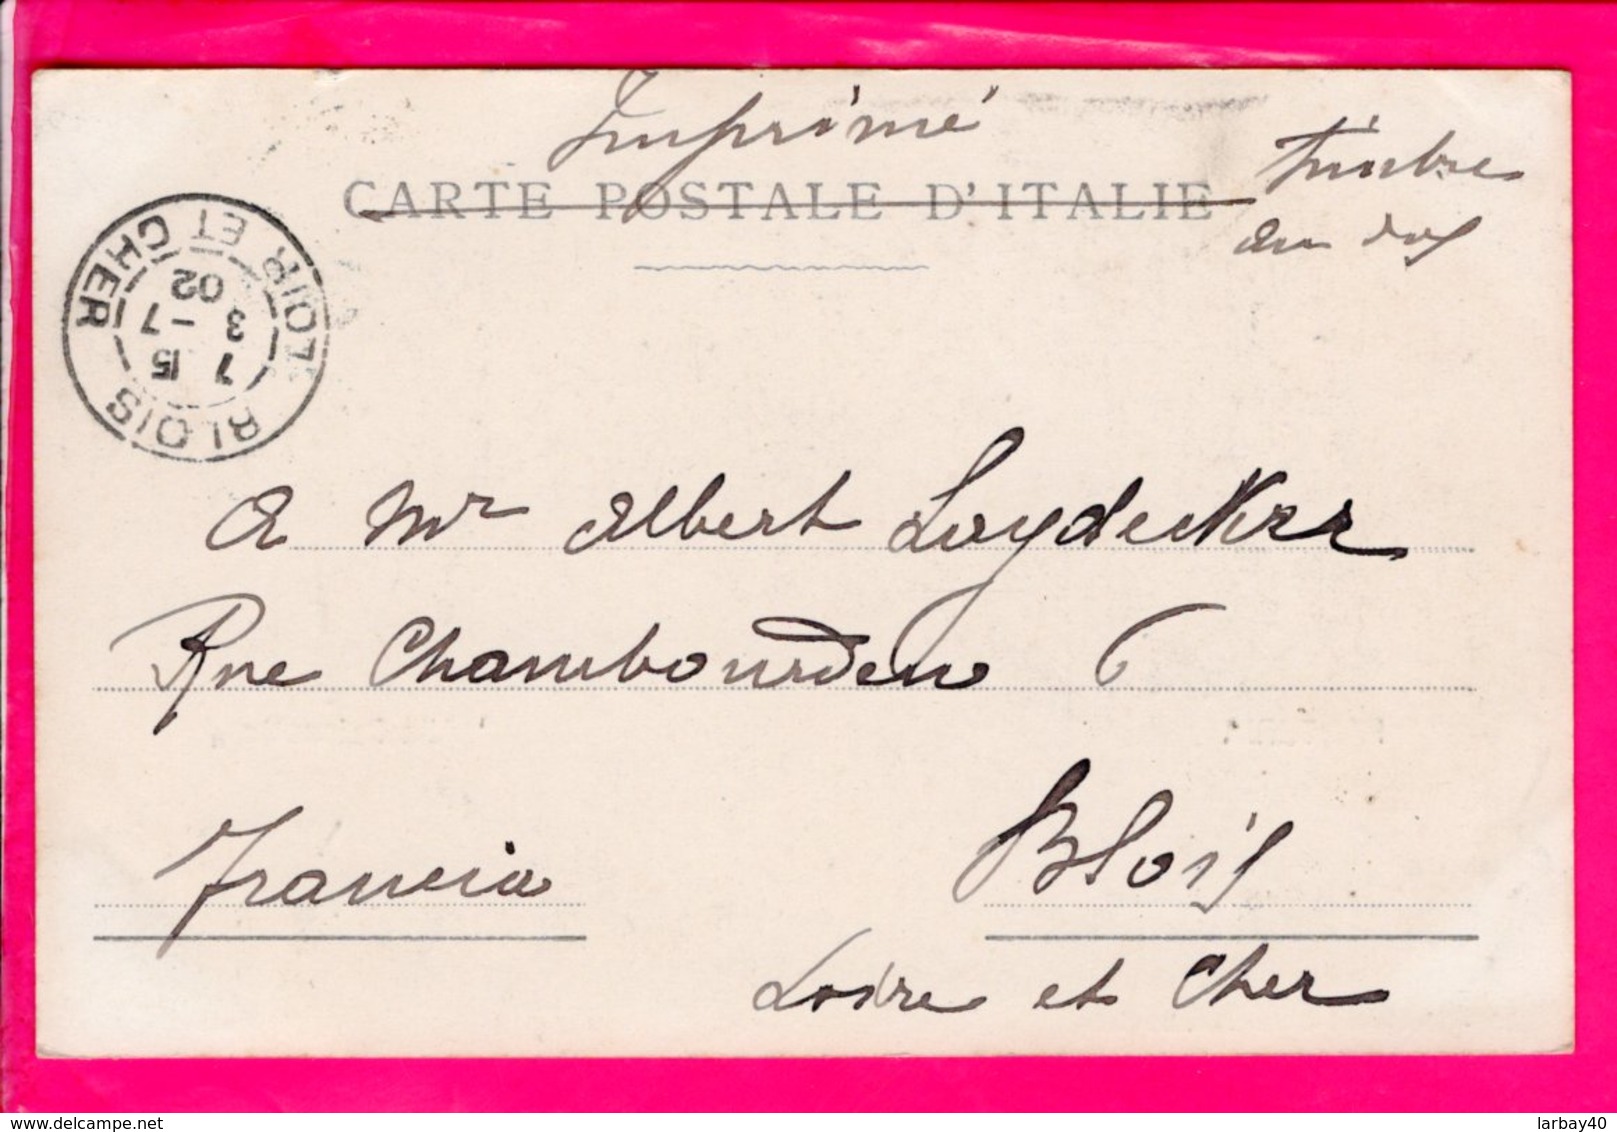 Imprimé
CARTE POSTALE D'ITALIE
Timbre
au dos
BLOIS
LOIR ET CHER
7 15
3 -7
02
A Mr Albert Leydecker
Rue Chambourdin 6
Francia
Blois
Loire et Cher
delcampe.net
larbay40